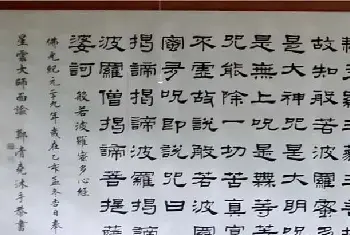 故知般若波羅蜜多
是大神咒是大明咒
是無上咒是無等等
咒能除一切苦真實
不虛故說般若波羅
蜜多咒即說咒曰
揭諦揭諦波羅揭諦
波羅僧揭諦菩提薩
婆訶 般若波羅密多心經
佛光紀元五十九年歲在乙未孟冬吉日奉
星雲大師面諭 鄭清堯沐手恭書